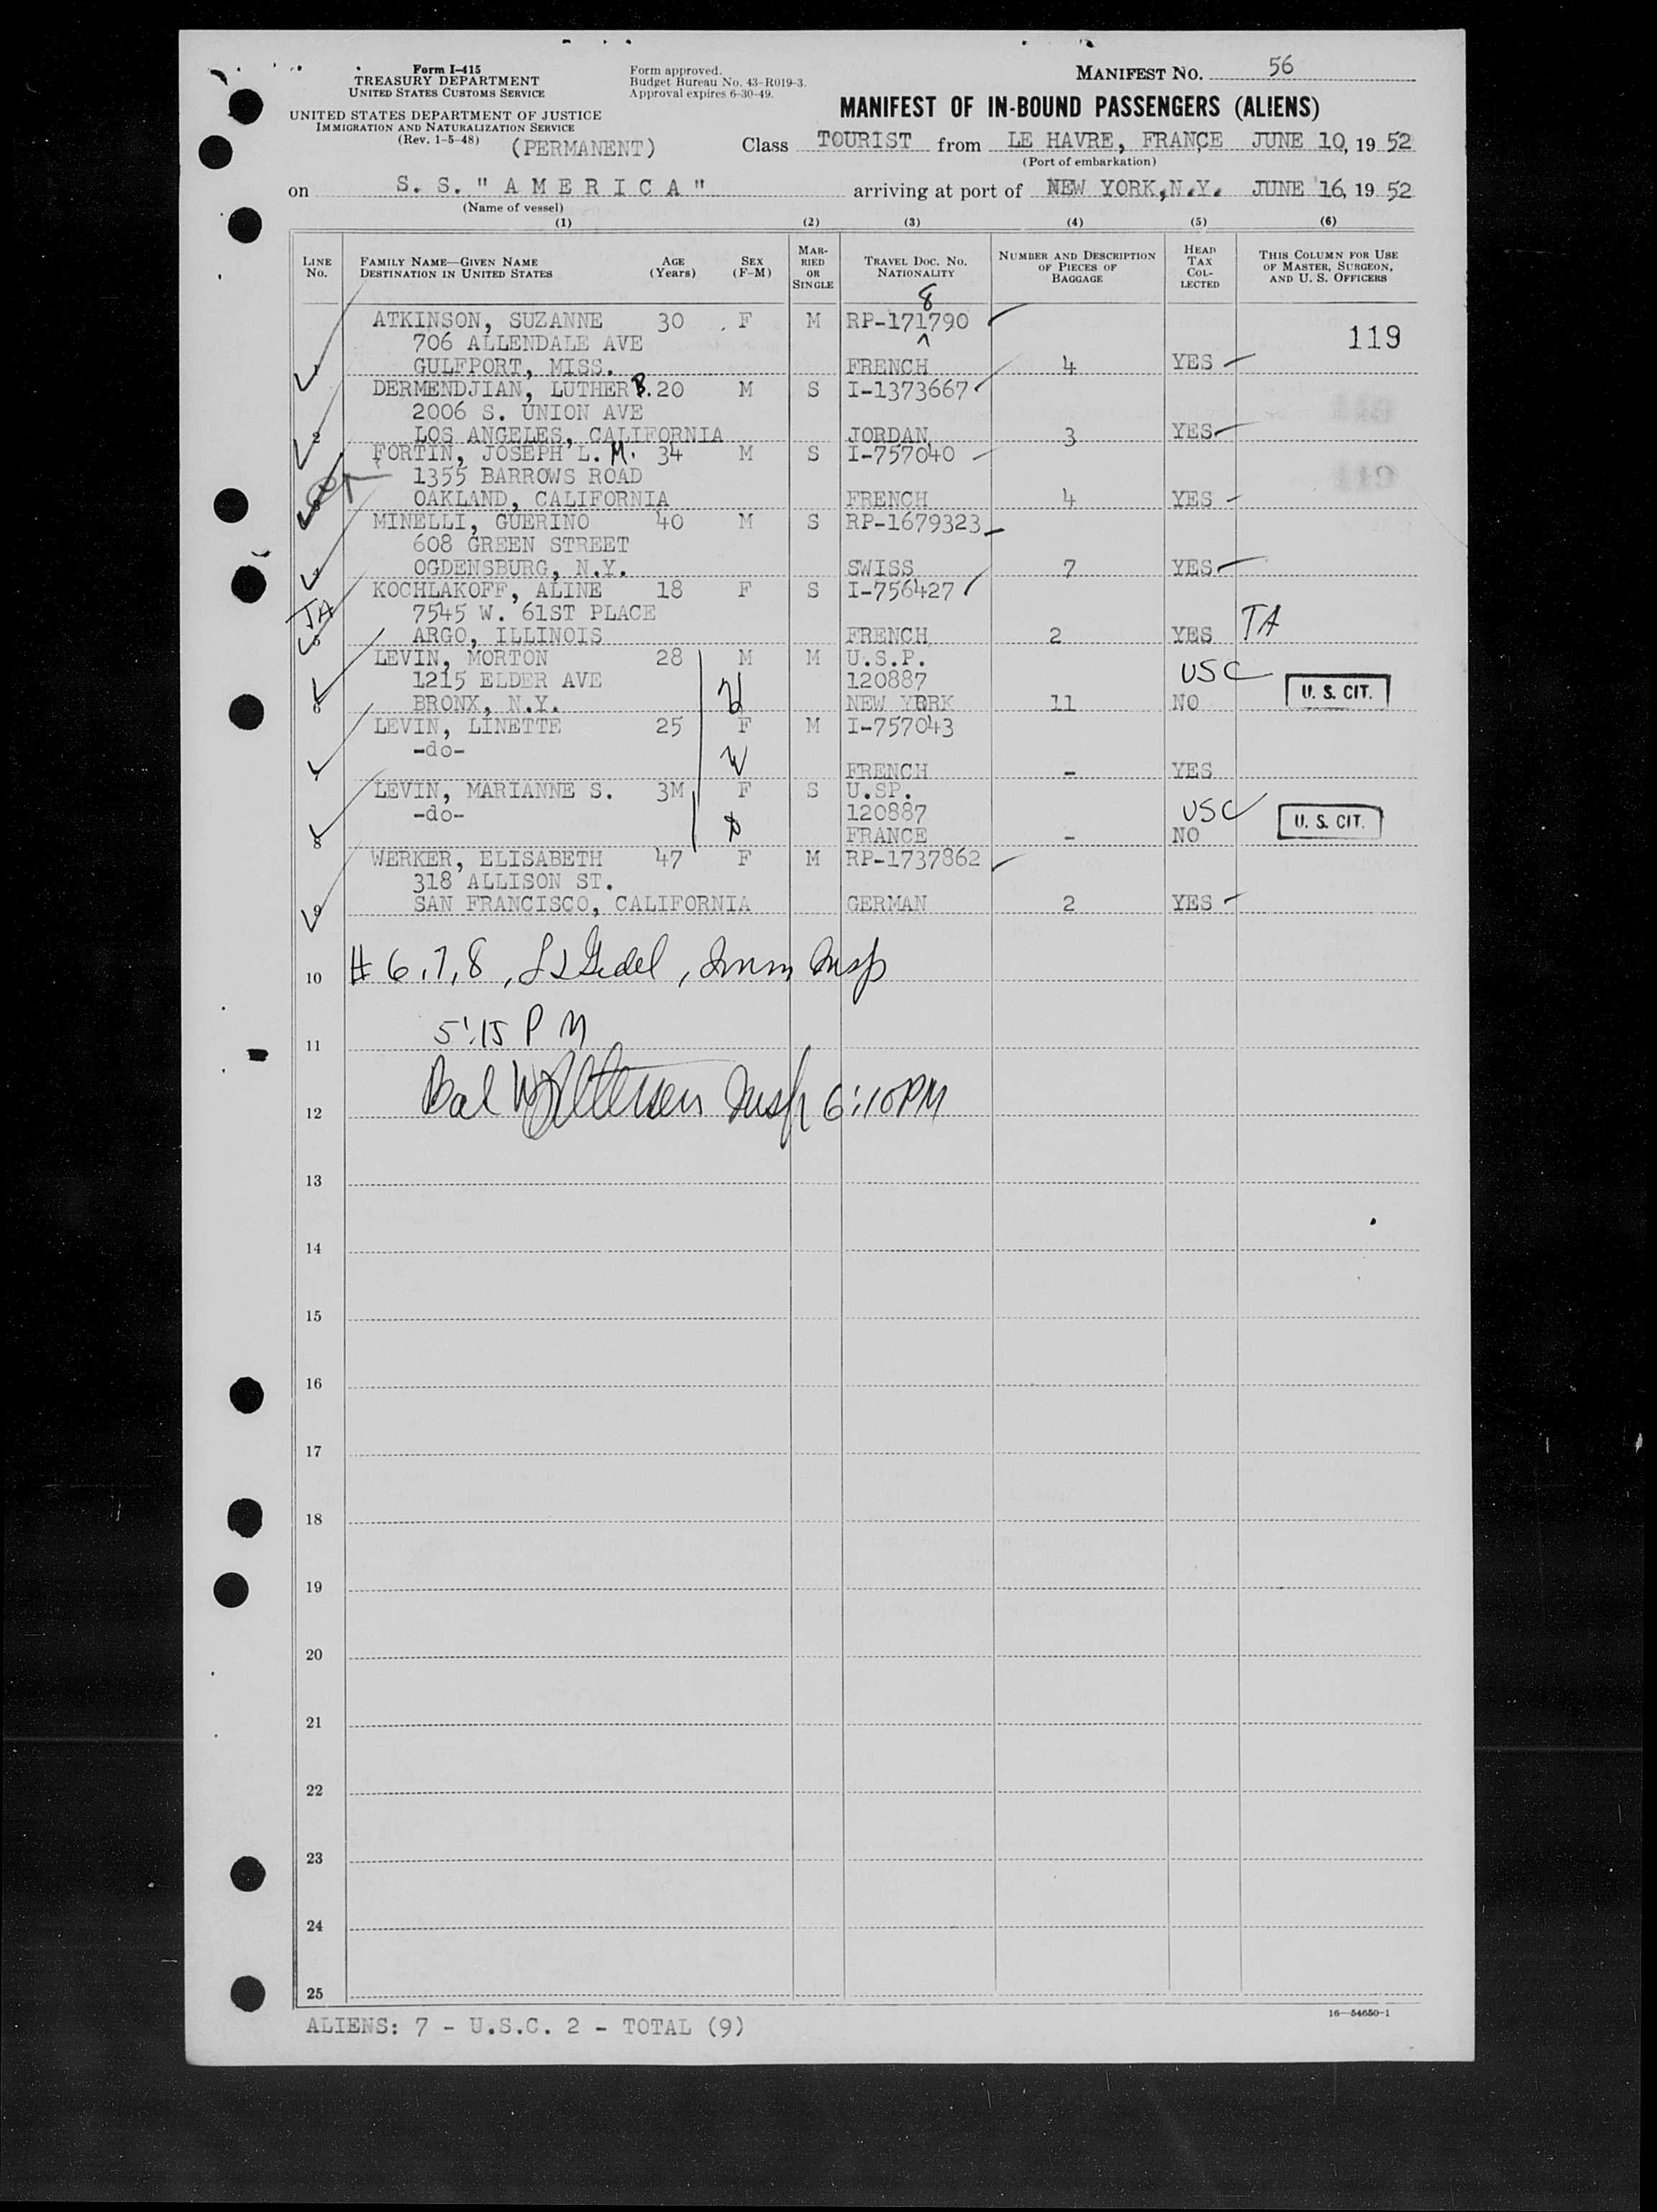 Form I-415
TREASURY DEPARTMENT
UNITED STATES CUSTOMS SERVICE
UNITED STATES DEPARTMENT OF JUSTICE
IMMIGRATION AND NATURALIZATION SERVICE
(Rev. 1-5-48)
(PERMANENT)
Form approved.
Budget Bureau No. 43-R019-3.
Approval expires 6-30-49.
MANIFEST NO. 56
MANIFEST OF IN-BOUND PASSENGERS (ALIENS)
Class TOURIST from LE HAVRE, FRANCE JUNE 10, 19 52
(Port of embarkation)
on S. S. "AMERICA" arriving at port of NEW YORK, N.Y. JUNE 16, 19 52
(Name of vessel)
(1) (2) (3) (4) (5) (6)
LINE No. FAMILY NAME—GIVEN NAME DESTINATION IN UNITED STATES AGE (Years) SEX (F-M) MARRIED OR SINGLE TRAVEL DOC. NO. NATIONALITY NUMBER AND DESCRIPTION OF PIECES OF BAGGAGE HEAD TAX COLLECTED THIS COLUMN FOR USE OF MASTER, SURGEON, AND U. S. OFFICERS
8
ATKINSON, SUZANNE 30 F M RP-171790
706 ALLENDALE AVE 119
1 GULFPORT, MISS. FRENCH 4 YES
DERMENDJIAN, LUTHER B. 20 M S I-1373667
2006 S. UNION AVE
2 LOS ANGELES, CALIFORNIA JORDAN 3 YES
FORTIN, JOSEPH L. M. 34 M S I-757040
1355 BARROWS ROAD
3 OAKLAND, CALIFORNIA FRENCH 4 YES
MINELLI, GUERINO 40 M S RP-1679323
608 GREEN STREET
4 OGDENSBURG, N.Y. SWISS 7 YES
KOCHLAKOFF, ALINE 18 F S I-756427
TA 7545 W. 61ST PLACE TA
5 ARGO, ILLINOIS FRENCH 2 YES
LEVIN, MORTON 28 M M U.S.P.
1215 ELDER AVE 120887 USC U. S. CIT.
6 BRONX, N.Y. NEW YORK 11 NO
LEVIN, LINETTE 25 F M I-757043
-do-
7 FRENCH - YES
LEVIN, MARIANNE S. 3M F S U.SP.
-do- 120887 USC U. S. CIT.
8 FRANCE - NO
WERKER, ELISABETH 47 F M RP-1737862
318 ALLISON ST.
9 SAN FRANCISCO, CALIFORNIA GERMAN 2 YES
10 # 6,7,8, Imm Insp
11 5:15 PM
12 Bal Insp 6:10PM
13
14
15
16
17
18
19
20
21
22
23
24
25
16—54650-1
ALIENS: 7 - U.S.C. 2 - TOTAL (9)